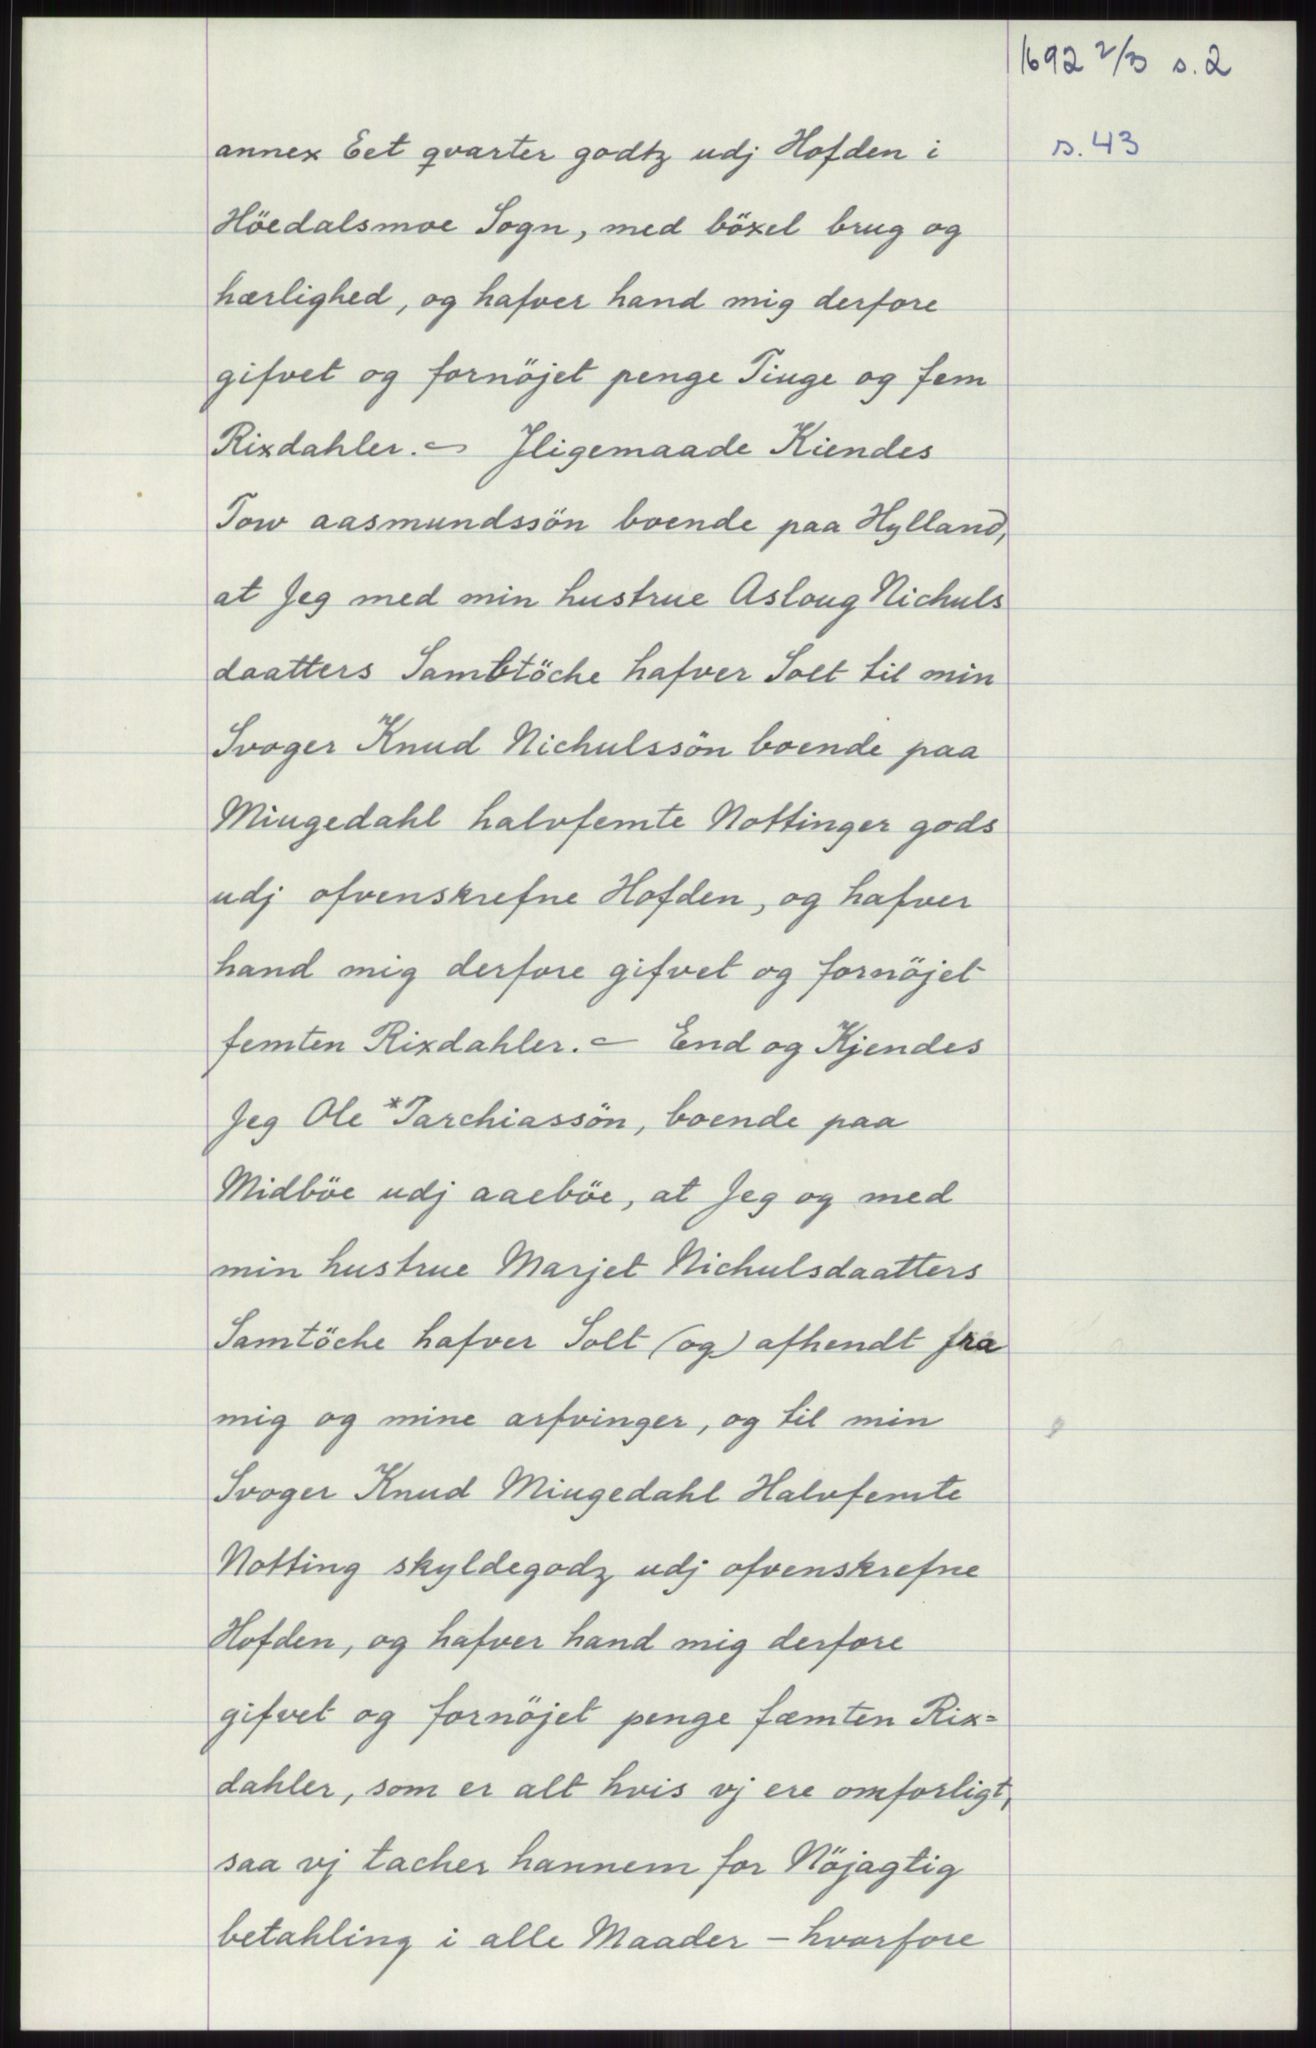 1692 2/3 s. 2
s. 43
annex Eet qvarter godtz udj Hofden i
Höedalsmoe Sogn, med böxel brug og
herlighed, og hafver hand mig derfore
gifvet og fornöjet penge Tiuge og fem
Rixdahler. — Jligemaade Kiendes
Tow aasmundssön boende paa Hylland,
at Jeg med min hustrue Asloug Nichuls
daatters Sambtöche hafver Solt til min
Svoger Knud Nichulssön boende paa
Miugedahl halvfemte Nottinger gods
udj ofvenskrefne Hofden, og hafver
hand mig derfore gifvet og fornöjet
femten Rixdahler. — End og Kjendes
Jeg Ole *Tarchiassön, boende paa
Midböe udj aaeböe, at Jeg og med
min hustrue Marjet Nichulsdaatters
Samtöche hafver Solt (og) afhendt fra
mig og mine arfvinger, og til min
Svoger Knud Miugedahl Halvfemte
Notting skyldegodz udj ofvenskrefne
Hofden, og hafver hand mig derfore
gifvet og fornöjet penge fæmten Rix=
dahler, som er alt hvis vj ere omforligt,
saa vj tacher hannem for Nöjagtig
betahling i alle Maader – hvorfore